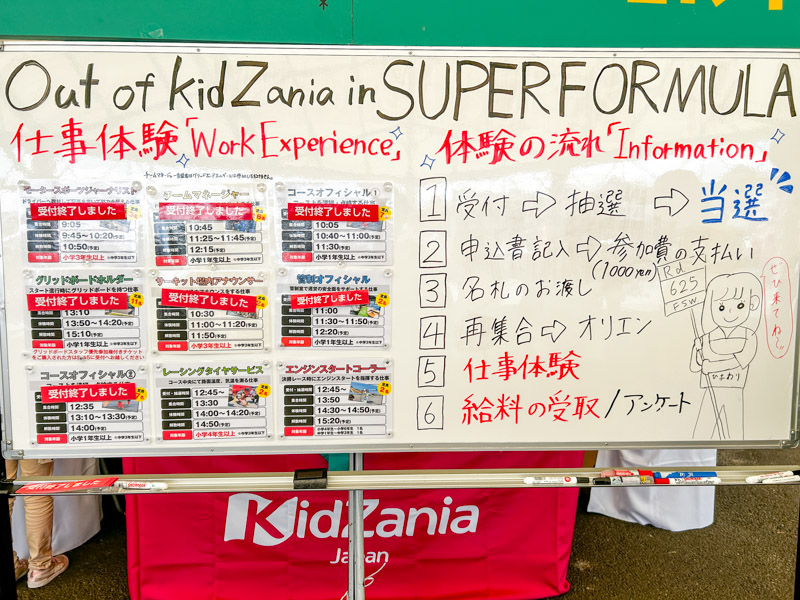 Out of kidZania in SUPERFORMULA
仕事体験「Work Experience」
モータースポーツジャーナリスト
受付終了しました
9:05
9:45~10:20(予定)
10:50(予定)
小学3年生以上
チームマネージャー
受付終了しました
10:45
11:25~11:45(予定)
12:15(予定)
小学1年生以上
コースオフィシャル①
受付終了しました
10:05
10:40~11:00(予定)
11:30(予定)
小学1年生以上
グリッドボードホルダー
スタート進行時にグリッドボードを持つ仕事
受付終了しました
13:10
13:50~14:20(予定)
15:10(予定)
小学1年生以上
サーキット場内アナウンサー
受付終了しました
10:30
11:00~11:20(予定)
11:50(予定)
小学3年生以上
管制オフィシャル
受付終了しました
11:00
11:30~11:50(予定)
12:20(予定)
小学3年生以上
コースオフィシャル②
受付終了しました
12:35
13:10~13:30(予定)
14:00(予定)
小学1年生以上
レーシングタイヤサービス
コース中央にて路面温度、気温を測る仕事
12:45~
13:30
14:00~14:20(予定)
14:50(予定)
小学4年生以上
エンジンスタートコーラー
決勝レース時にエンジンスタートを指揮する仕事
12:45~
13:50
14:30~14:50(予定)
15:20(予定)
体験の流れ「Information」
1 受付⇨抽選⇨当選
2 申込書記入⇨参加費の支払い
(1000yen)
3 名札のお渡し
4 再集合⇨オリエン
5 仕事体験
6 給料の受取/アンケート
Rd
625
FSW
ぜひ来てね!!
ひまわり
受付終了しました
KidZania
Japan